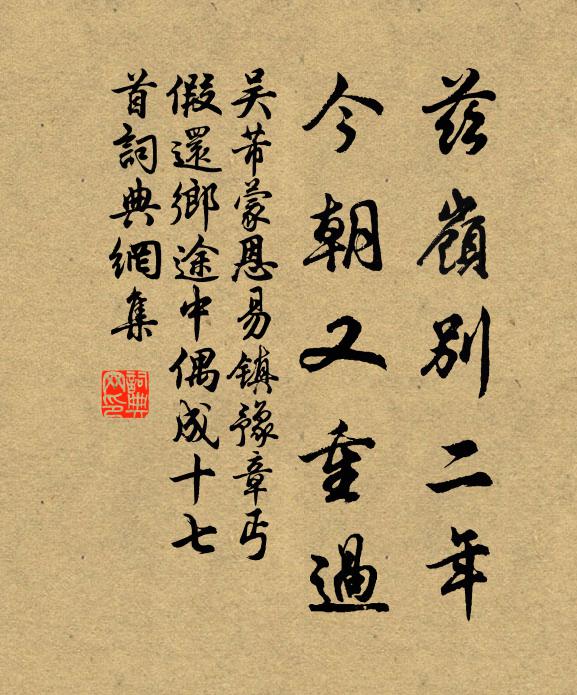 茲嶺別二年
今朝又重過
吴芾蒙恩易鎮豫章丐
假還鄉途中偶成十七
首詞典網集
詞典網印